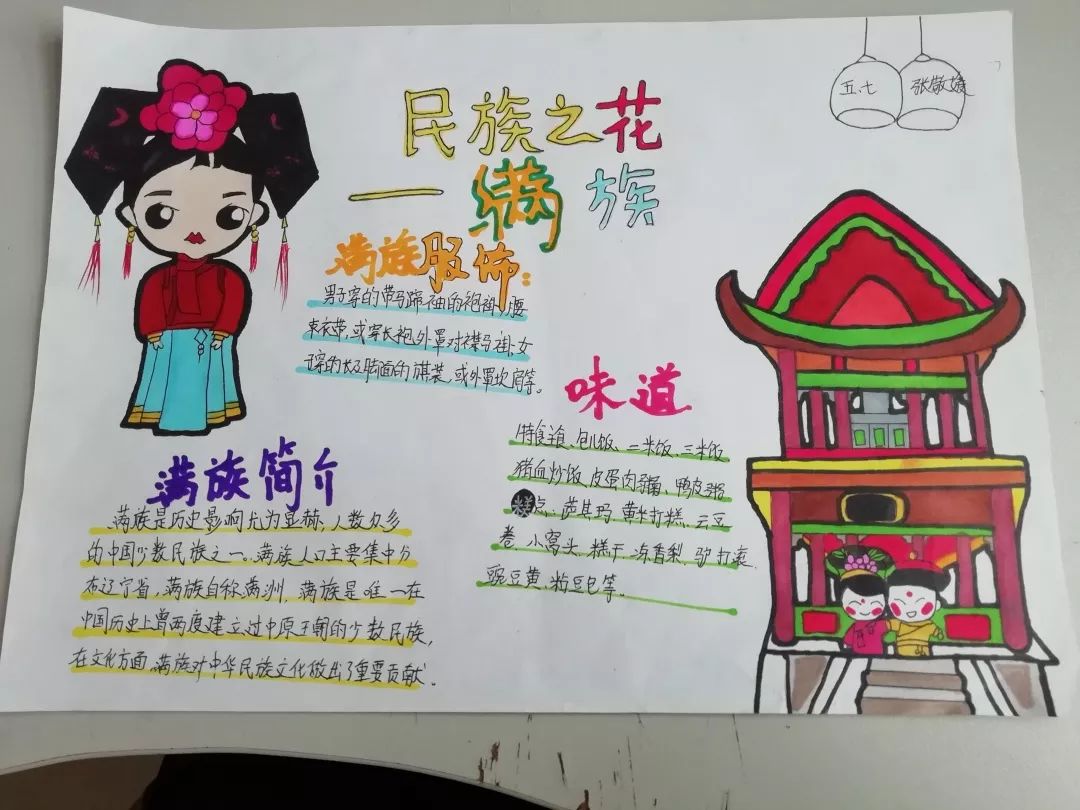 民族之花
——满族
五、七
张傲
满族服佈：
男子穿的带马蹄袖的袍褂,腰
束衣带,或穿长袍外罩对襟马褂,女
子穿的长及脚面的旗装,或外罩坎肩等。
味道
特食道、包儿饭、二米饭、三米饭
猪血炒饭,皮蛋肉粥、鸭皮粥
糕点、萨其玛、黄牛打糕、云豆
卷、小窝头、糕干、冻香梨、驴打滚、
豌豆黄、粘豆包等。
满族简介
满族是历史影响尤为显赫、人数众多
的中国少数民族之一。满族人口主要集中分
在辽宁省,满族自称满洲,满族是唯一在
中国历史上曾两度建立过中原王朝的少数民族,
在文化方面,满族对中华民族文化做出了重要贡献。